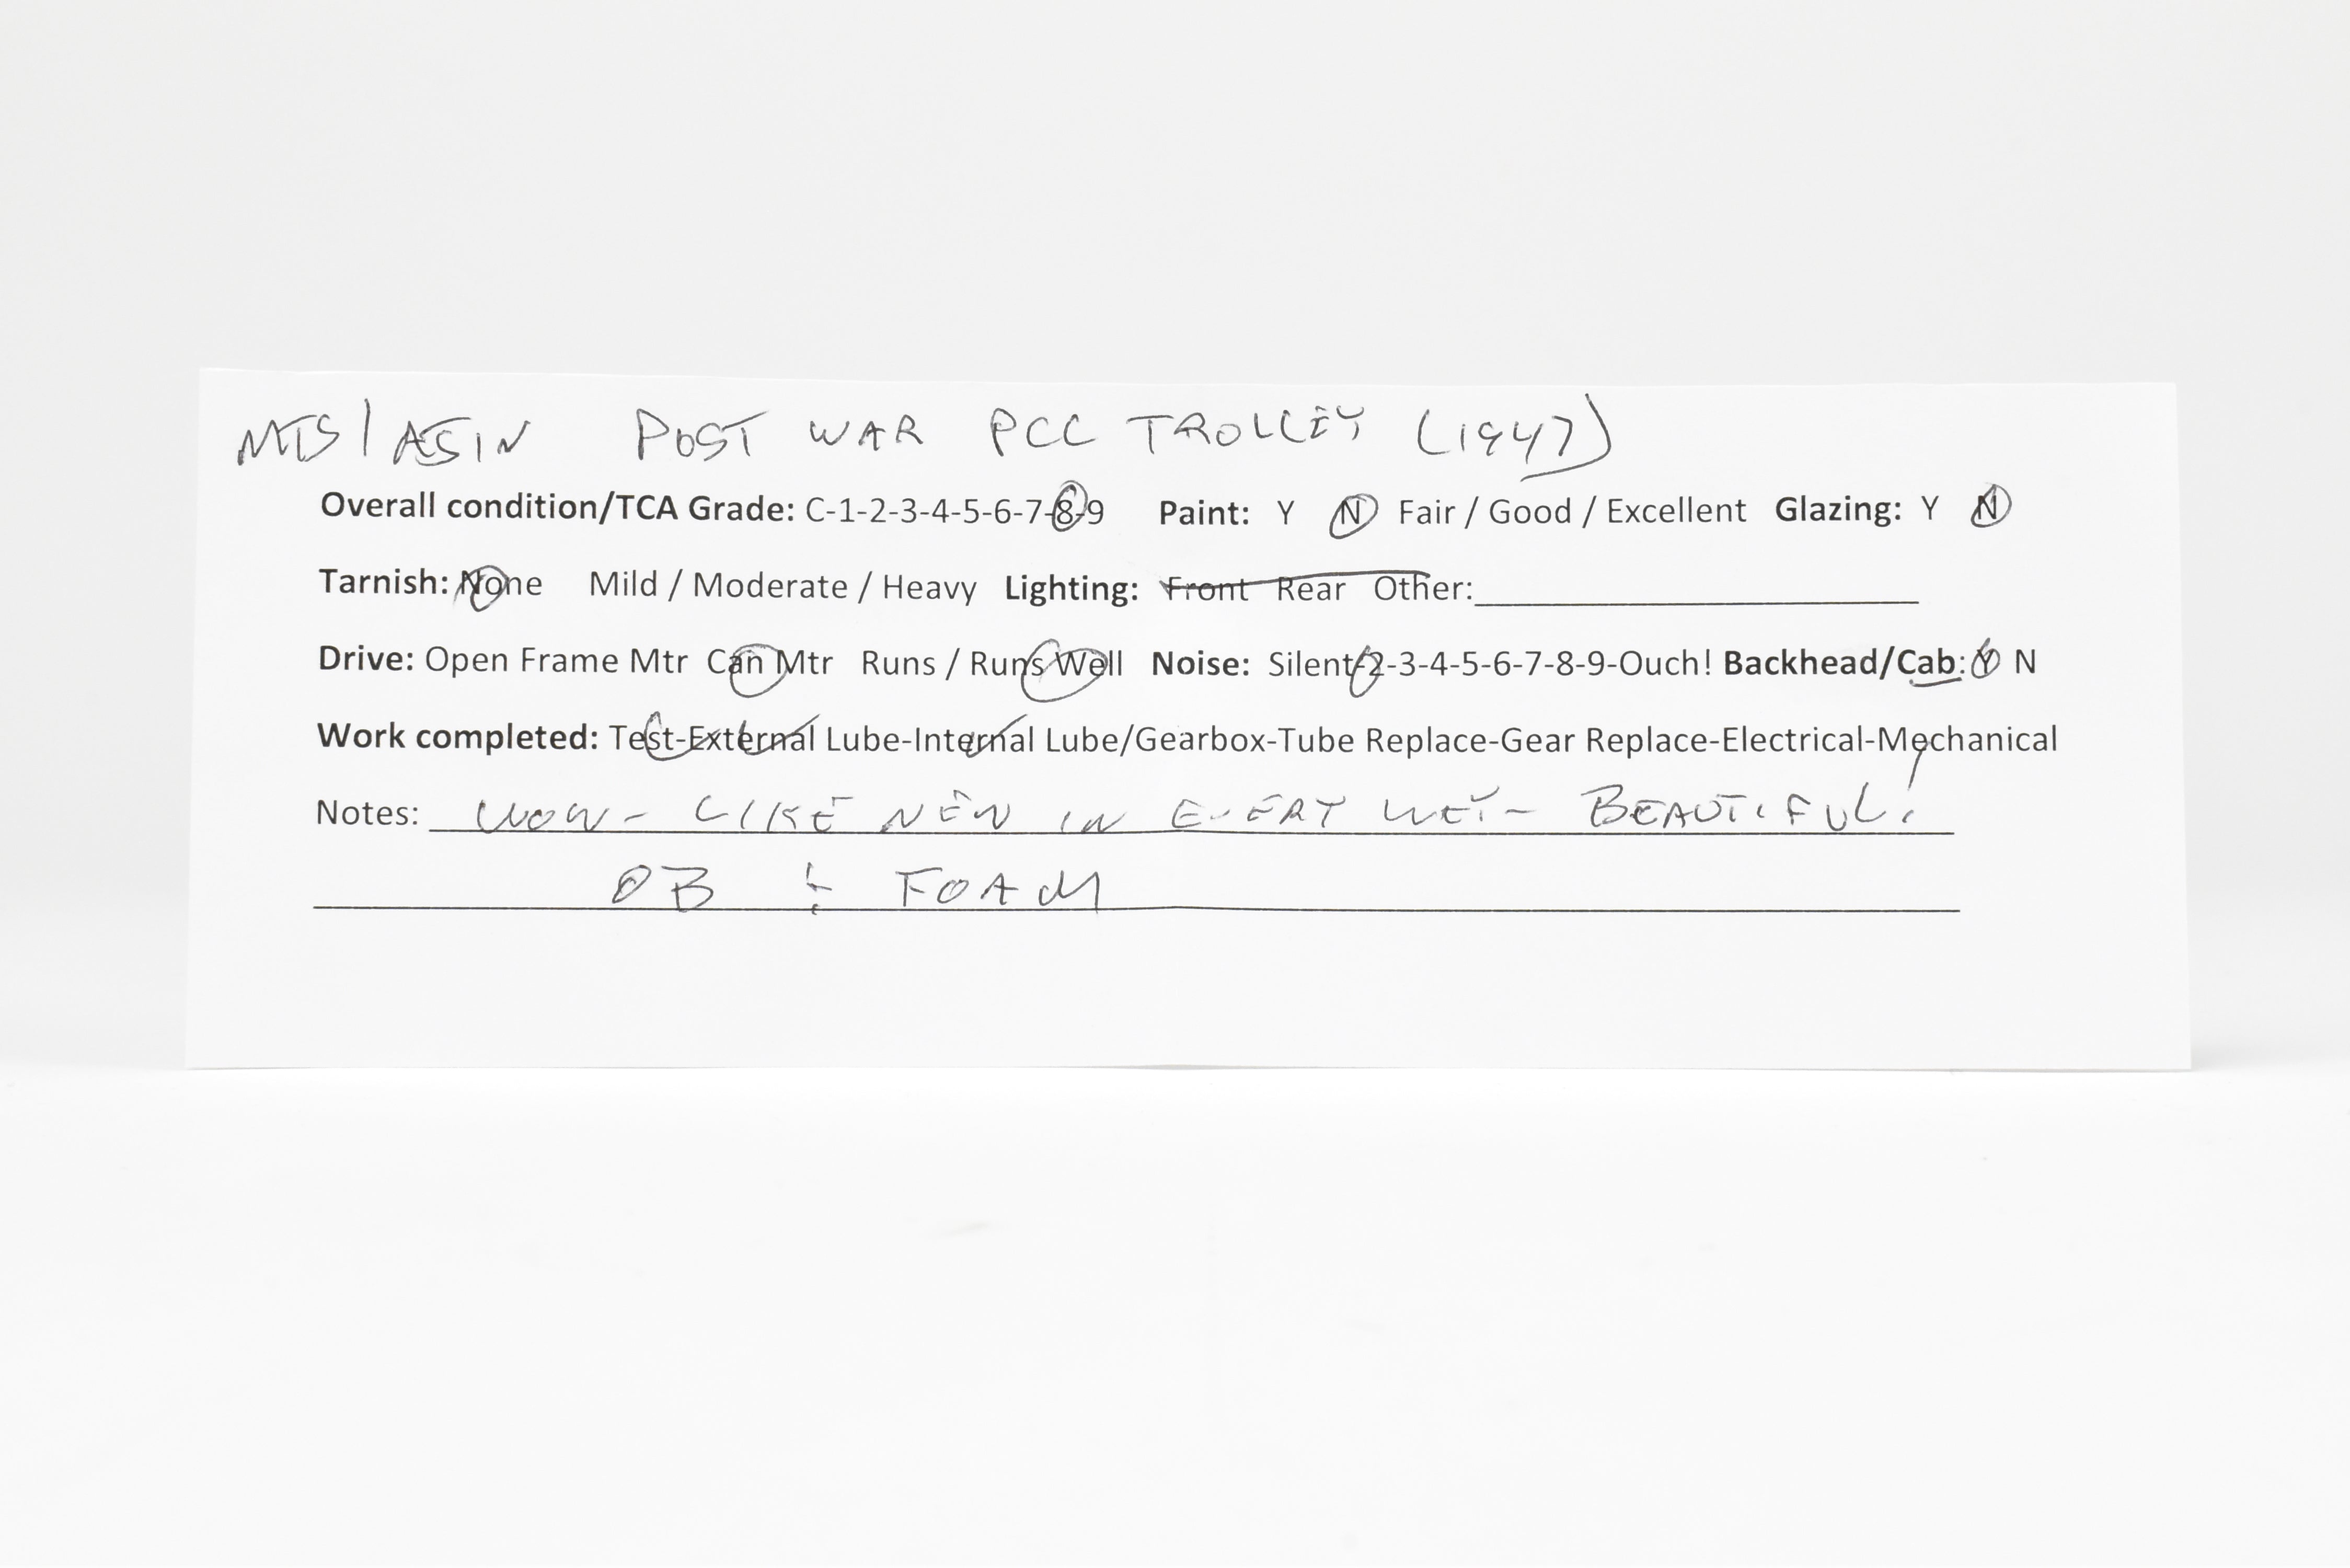 MTS/ASIN POST WAR PCC TROLLEY (1947)
Overall condition/TCA Grade: C-1-2-3-4-5-6-7-8-9 Paint: Y N Fair / Good / Excellent Glazing: Y N
Tarnish: None Mild / Moderate / Heavy Lighting: Front Rear Other:
Drive: Open Frame Mtr Can Mtr Runs / Runs Well Noise: Silent-2-3-4-5-6-7-8-9-Ouch! Backhead/Cab: Y N
Work completed: Test-External Lube-Internal Lube/Gearbox-Tube Replace-Gear Replace-Electrical-Mechanical
Notes: WOW - LIKE NEW IN EVERY WAY - BEAUTIFUL!
OB & FOAM